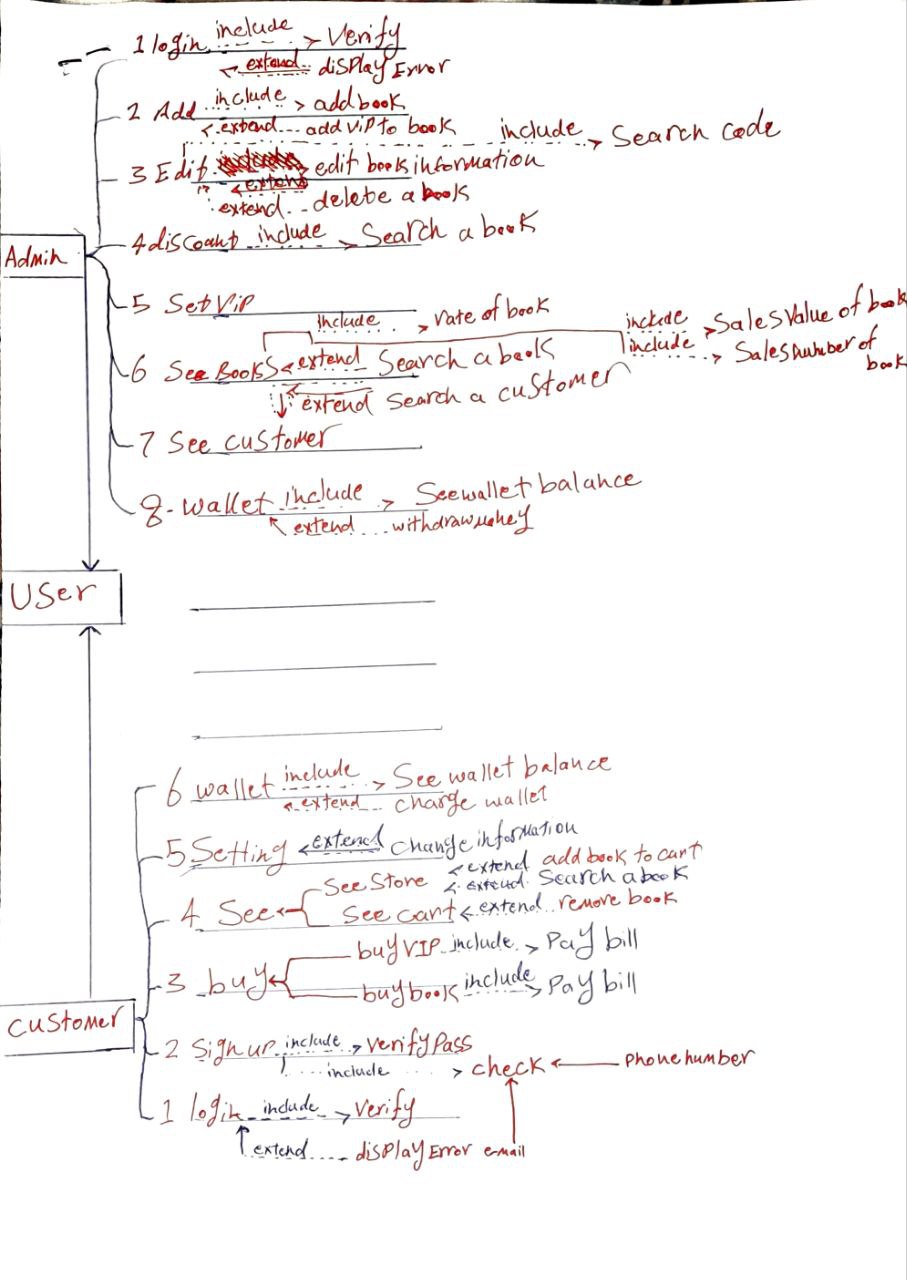 1 login include Verify
extend display Error
2 Add include add book
extend add ViP to book include Search code
3 Edit edit book information
extend
extend delete a book
4 discount include Search a book
Admin
5 Set ViP
include rate of book include Sales Value of book
6 See Books extend Search a book include Sales number of book
extend Search a customer
7 See customer
8- wallet include See wallet balance
extend withdraw money
User
6 wallet include See wallet balance
extend charge wallet
5 Setting extend change information
See Store extend add book to cart
extend Search a book
4 See See cart extend remove book
buy VIP include Pay bill
3 buy
buy book include Pay bill
Customer
2 Sign up include Verify Pass
include check Phone number
1 login include Verify
extend display Error e-mail